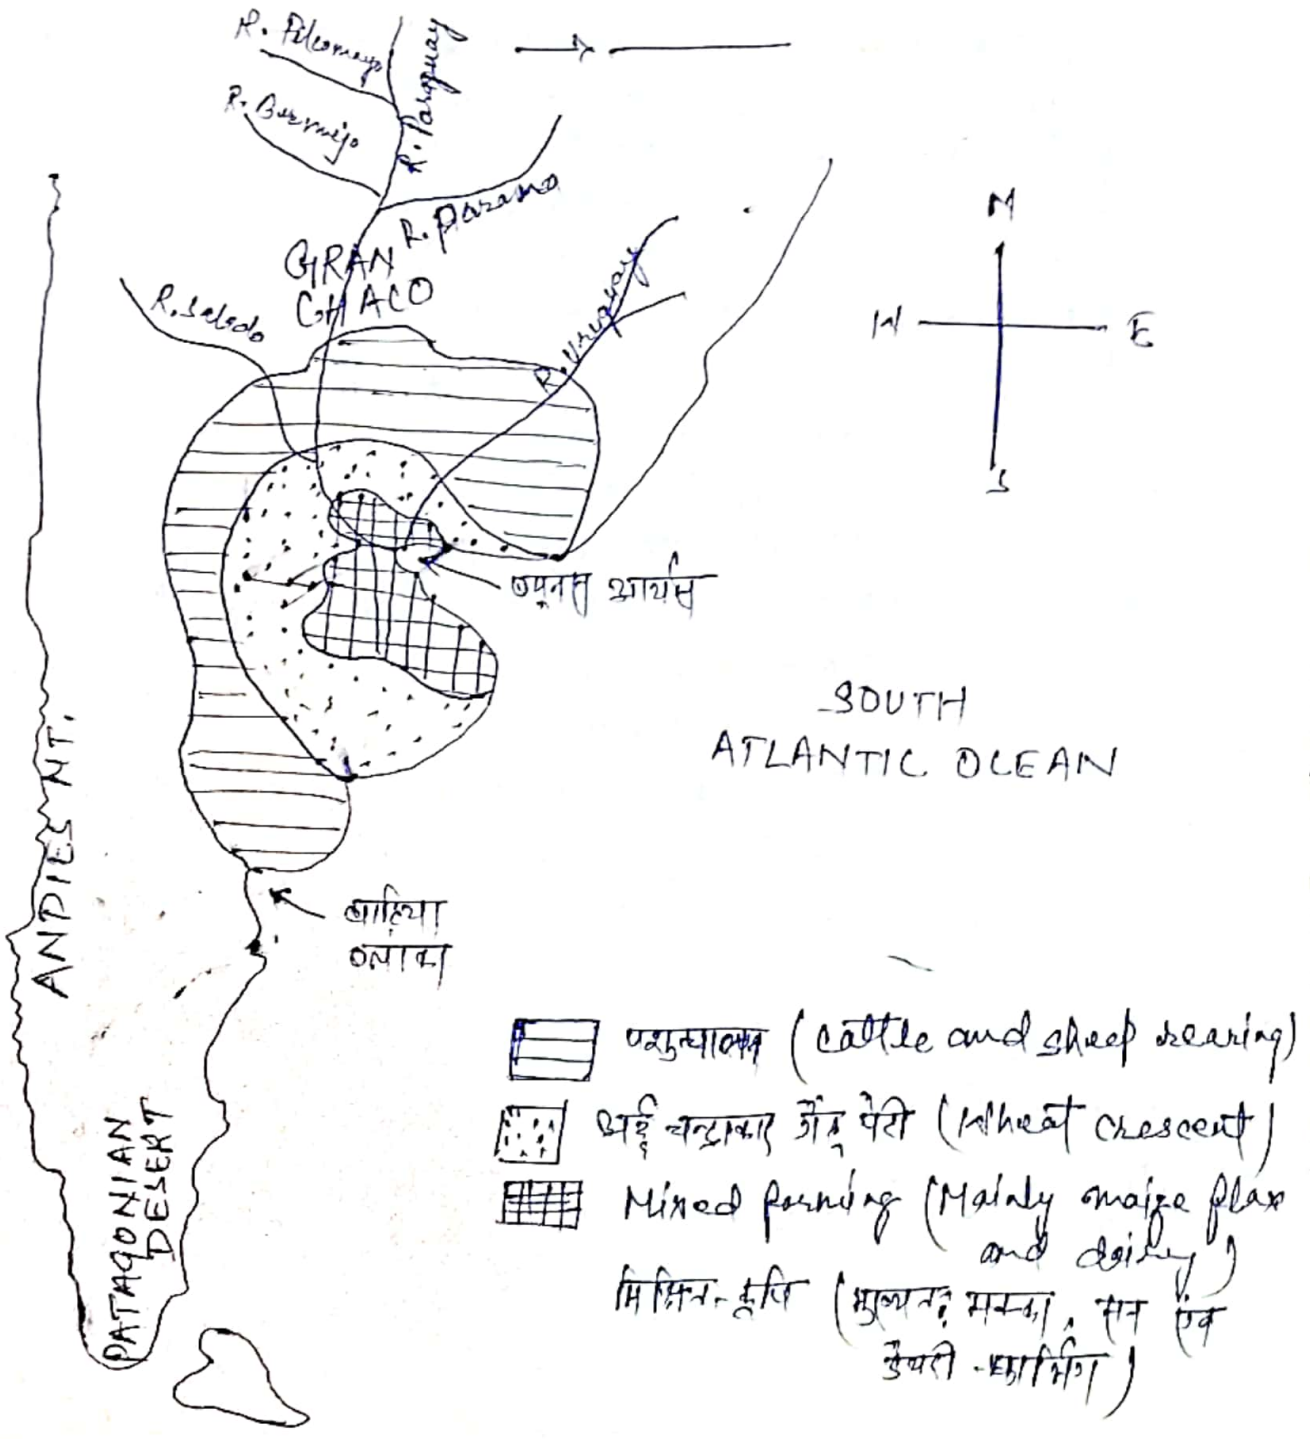 R. Pilcomayo
R. Paraguay
R. Bermejo
R. Parana
GRAN
CHACO
R. Salado
R. Uruguay
N
W
E
S
ब्यूनस आयर्स
SOUTH
ATLANTIC OCEAN
ANDIES MT.
बाहिया
ब्लांका
PATAGONIAN
DESERT
पशुपालन (cattle and sheep rearing)
अर्द्ध चन्द्राकार गेंहू पेटी (Wheat crescent)
Mixed farming (Mainly maize flax
and dairy)
मिश्रित-कृषि (मुख्यतः मक्का, सन एंव
डेयरी-फार्मिंग)